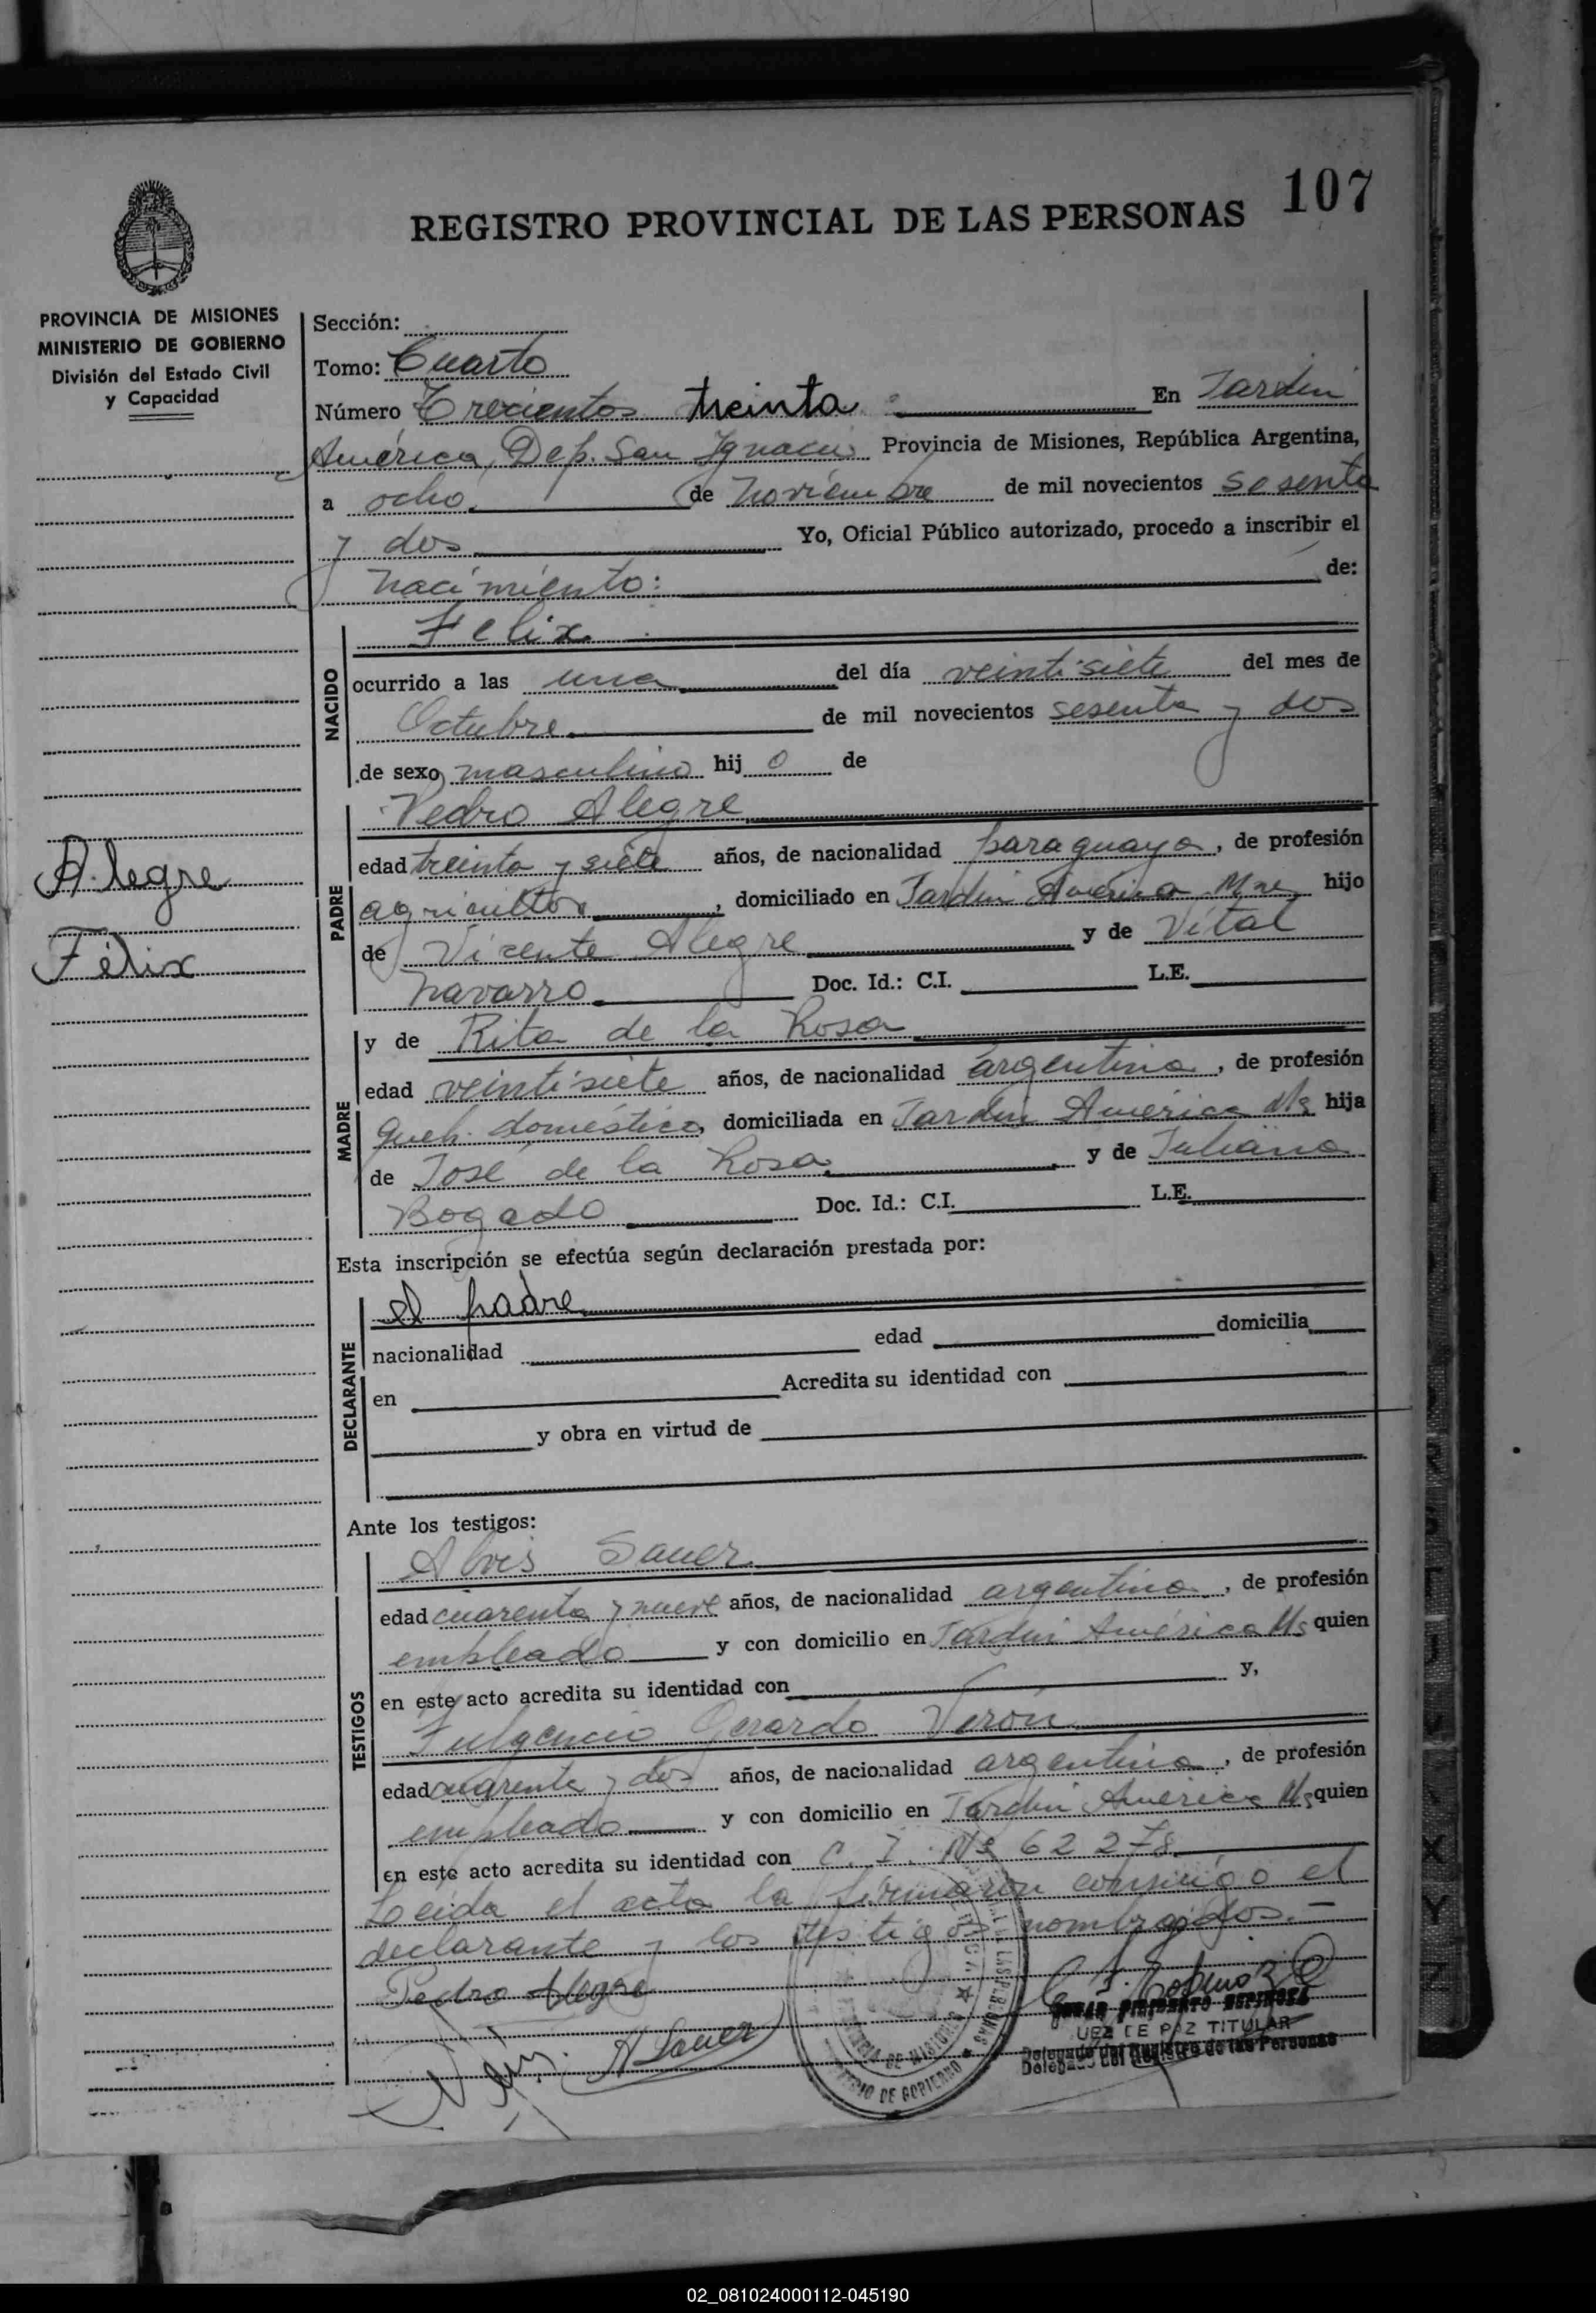 107
REGISTRO PROVINCIAL DE LAS PERSONAS
PROVINCIA DE MISIONES
MINISTERIO DE GOBIERNO
División del Estado Civil
y Capacidad
Alegre
Félix
Sección:
Tomo: Cuarto
Número Trecientos treinta En Jardin
América, Dep. San Ignacio Provincia de Misiones, República Argentina,
a ocho de noviembre de mil novecientos sesenta
y dos Yo, Oficial Público autorizado, procedo a inscribir el
nacimiento: de:
NACIDO
Felix
ocurrido a las una del día veintisiete del mes de
Octubre de mil novecientos sesenta y dos
de sexo masculino hij o de
PADRE
Pedro Alegre
edad treinta y siete años, de nacionalidad paraguaya, de profesión
agricultor, domiciliado en Jardin América hijo
de Vicente Alegre y de Vital
Navarro Doc. Id.: C.I. L.E.
MADRE
y de Rita de la Rosa
edad veintisiete años, de nacionalidad argentina, de profesión
queh. doméstico, domiciliada en Jardin América Ms hija
de José de la Rosa y de Juliana
Bogado Doc. Id.: C.I. L.E.
Esta inscripción se efectúa según declaración prestada por:
DECLARANTE
el padre
nacionalidad edad domicilia
en Acredita su identidad con
y obra en virtud de
Ante los testigos:
TESTIGOS
Alvis Sauer
edad cuarenta y nueve años, de nacionalidad argentina, de profesión
empleado y con domicilio en Jardin América Ms quien
en este acto acredita su identidad con y,
Fulgencio Gerardo Verón
edad cuarenta y dos años, de nacionalidad argentina, de profesión
empleado y con domicilio en Jardin América Ms quien
en este acto acredita su identidad con C. I. Nº 62278
Leida el acta la firmaron conmigo el
declarante y los testigos nombrados.-
Pedro Alegre
A Sauer
UEZ DE PAZ TITULAR
Delegado del Registro de las Personas
MINISTERIO DE GOBIERNO
02_081024000112-045190